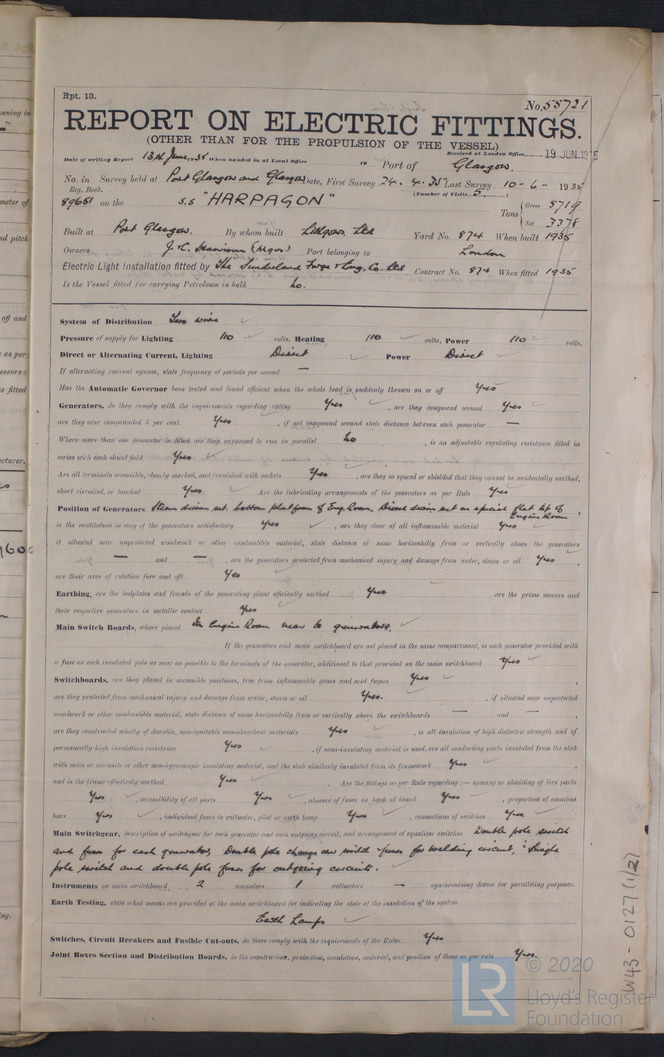 Rpt. 13.
No. 55721
REPORT ON ELECTRIC FITTINGS.
(OTHER THAN FOR THE PROPULSION OF THE VESSEL)
Received at London Office 19 JUN. 1935
Date of writing Report 13th June 1935 When handed in at Local Office 19 Port of Glasgow.
No. in Survey held at Port Glasgow and Glasgow Date, First Survey 24. 4. 35 Last Survey 10-6-1935
Reg. Book. (Number of Visits 5)
89651 on the S.S "HARPAGON" Tons Gross 5719
Net 3378
Built at Port Glasgow. By whom built Lithgows Ltd Yard No. 874 When built 1935
Owners J. C. Harrison (Mgrs) Port belonging to London
Electric Light Installation fitted by The Sunderland Forge & Eng. Co. Ltd Contract No. 874 When fitted 1935
Is the Vessel fitted for carrying Petroleum in bulk no.
System of Distribution Two wire
Pressure of supply for Lighting 110 volts, Heating 110 volts, Power 110 volts.
Direct or Alternating Current, Lighting Direct Power Direct
If alternating current system, state frequency of periods per second —
Has the Automatic Governor been tested and found efficient when the whole load is suddenly thrown on or off Yes
Generators, do they comply with the requirements regarding rating Yes , are they compound wound Yes
are they over compounded 5 per cent. Yes , if not compound wound state distance between each generator —
Where more than one generator is fitted are they arranged to run in parallel no , is an adjustable regulating resistance fitted in
series with each shunt field Yes
Are all terminals accessible, clearly marked, and furnished with sockets Yes , are they so spaced or shielded that they cannot be accidentally earthed,
short circuited, or touched Yes Are the lubricating arrangements of the generators as per Rule Yes
Position of Generators Steam driven set bottom platform of Eng. Room. Diesel driven set on special flat top of Engine Room
is the ventilation in way of the generators satisfactory Yes , are they clear of all inflammable material Yes
if situated near unprotected woodwork or other combustible material, state distance of same horizontally from or vertically above the generators
— and — , are the generators protected from mechanical injury and damage from water, steam or oil Yes ,
are their axes of rotation fore and aft Yes
Earthing, are the bedplates and frames of the generating plant efficiently earthed Yes are the prime movers and
their respective generators in metallic contact Yes
Main Switch Boards, where placed In Engine Room near to generators.
If the generators and main switchboard are not placed in the same compartment, is each generator provided with
a fuse on each insulated pole as near as possible to the terminals of the generator, additional to that provided on the main switchboard Yes
Switchboards, are they placed in accessible positions, free from inflammable gases and acid fumes Yes ,
are they protected from mechanical injury and damage from water, steam or oil Yes. , if situated near unprotected
woodwork or other combustible material, state distance of same horizontally from or vertically above the switchboards — and — ,
are they constructed wholly of durable, non-ignitable non-absorbent materials Yes , is all insulation of high dielectric strength and of
permanently high insulation resistance Yes , if semi-insulating material is used, are all conducting parts insulated from the slab
with mica or micanite or other non-hygroscopic insulating material, and the slab similarly insulated from its framework Yes ,
and is the frame effectively earthed Yes . Are the fittings as per Rule regarding:— spacing or shielding of live parts
Yes , accessibility of all parts Yes , absence of fuses on back of board Yes , proportion of omnibus
bars Yes , individual fuses to voltmeter, pilot or earth lamp Yes , connections of switches Yes
Main Switchgear, description of switchgear for each generator and each outgoing circuit, and arrangement of equalizer switches Double pole switch
and fuses for each generator, Double pole change over switch & fuses for welding circuit, & Single
pole switch and double pole fuses for outgoing circuits.
Instruments on main switchboard, 2 ammeters 1 voltmeters — synchronising device for paralleling purposes.
Earth Testing, state what means are provided at the main switchboard for indicating the state of the insulation of the system
Earth Lamps
Switches, Circuit Breakers and Fusible Cut-outs, do these comply with the requirements of the Rules Yes
Joint Boxes Section and Distribution Boards, is the construction, protection, insulation, material, and position of these as per rule Yes.
W43-0127(1/2)
LR
© 2020
Lloyd's Register
Foundation